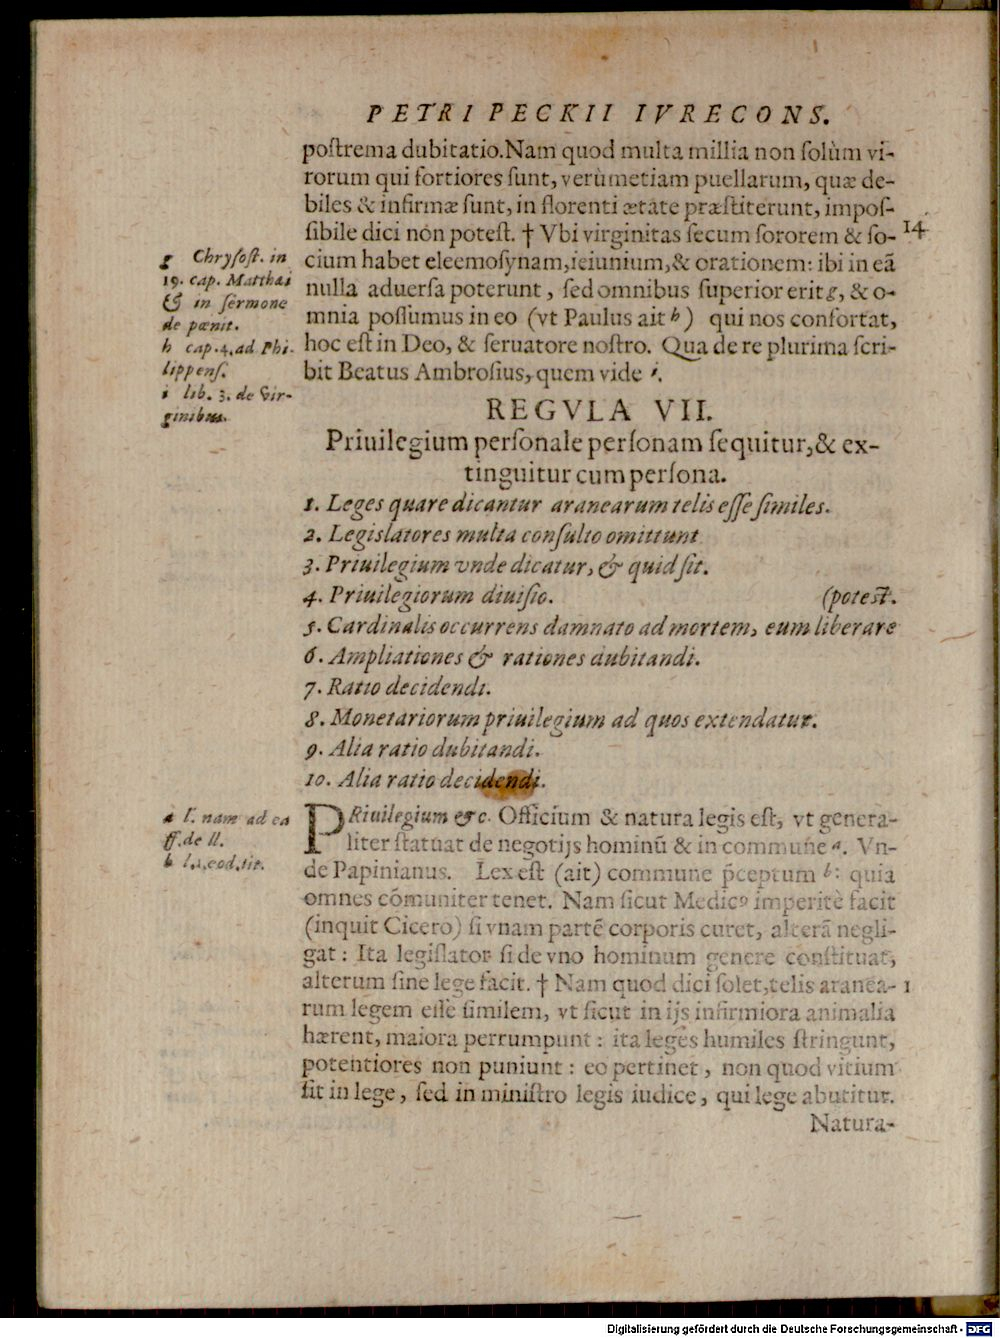 PETRI PECKII IVRECONS.
poſtrema dubitatio. Nam quod multa millia non ſolùm vi-
rorum qui fortiores ſunt, verùm etiam puellarum, quæ de-
biles & infirmæ ſunt, in florenti ætate præſtiterunt, impoſ-
ſibile dici non poteſt. † Vbi virginitas ſecum ſororem & ſo-
14
cium habet eleemoſynam, ieiunium, & orationem: ibi in eā
nulla aduerſa poterunt, ſed omnibus ſuperior erit g, & o-
mnia poſſumus in eo (vt Paulus ait h) qui nos confortat,
hoc eſt in Deo, & ſeruatore noſtro. Qua de re plurima ſcri-
bit Beatus Ambroſius, quem vide i.
g Chryſoſt. in
19. cap. Matthæi
& in ſermone
de pœnit.
h cap. 4. ad Phi-
lippenſ.
i lib. 3. de Vir-
ginibus.
REGVLA VII.
Priuilegium perſonale perſonam ſequitur, & ex-
tinguitur cum perſona.
1. Leges quare dicantur aranearum telis eſſe ſimiles.
2. Legislatores multa conſulto omittunt
3. Priuilegium vnde dicatur, & quid ſit.
4. Priuilegiorum diuiſio. (poteſt.
5. Cardinalis occurrens damnato ad mortem, eum liberare
6. Ampliationes & rationes dubitandi.
7. Ratio decidendi.
8. Monetariorum priuilegium ad quos extendatur.
9. Alia ratio dubitandi.
10. Alia ratio decidendi.
PRiuilegium &c. Officium & natura legis eſt, vt genera-
liter ſtatuat de negotijs hominū & in commune a. Vn-
de Papinianus. Lex eſt (ait) commune p̄ceptum b: quia
omnes cōmuniter tenet. Nam ſicut Medicꝰ imperitè facit
(inquit Cicero) ſi vnam partē corporis curet, alterā negli-
gat: Ita legiſlator ſi de vno hominum genere conſtituat,
alterum ſine lege facit. † Nam quod dici ſolet, telis aranea-
1
rum legem eſſe ſimilem, vt ſicut in ijs infirmiora animalia
hærent, maiora perrumpunt: ita leges humiles ſtringunt,
potentiores non puniunt: eo pertinet, non quod vitium
ſit in lege, ſed in miniſtro legis iudice, qui lege abutitur.
Natura-
a l. nam ad ea
ff. de ll.
b l. 1. eod. tit.
Digitalisierung gefördert durch die Deutsche Forschungsgemeinschaft - DFG